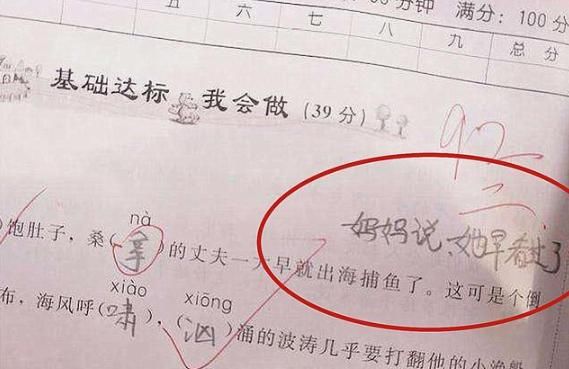 分钟 满分：100 分
五 六 七 八 九 总分
基础达标 我会做 (39 分)
92
妈妈说,她早看过了
nà
)饱肚子，桑( )的丈夫一大早就出海捕鱼了。这可是个倒
xiào xiōng
布，海风呼(啸)，(汹)涌的波涛几乎要打翻他的小渔船